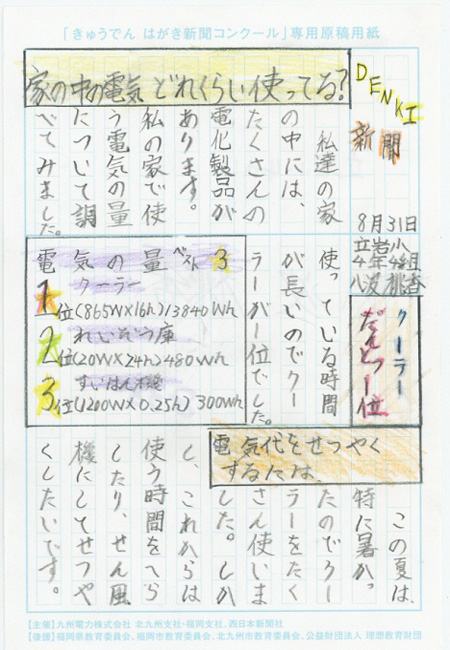 「きゅうでん はがき新聞コンクール」専用原稿用紙
DENKI
新聞
8月31日
立岩小
4年4組
八波 桃香
家の中の電気 どれくらい使ってる？
私達の家
の中には、
たくさんの
電化製品が
あります。
私の家で使
う電気の量
について調
べてみました。
クーラー
だんとつ一位
使っている時間
が長いのでクー
ラーが一位でした。
電気の量ベスト3
1位 クーラー
(865W×16h)13840Wh
2位 れいぞう庫
(20W×24h)480Wh
3位 すいはん機
(1200W×0.25h) 300Wh
電気代をせつやく
するには
この夏は、
特に暑かっ
たのでクー
ラーをたく
さん使いま
した。しか
し、これからは
使う時間をへら
したり、せん風
機にしてせつや
くしたいです。
【主催】九州電力株式会社 北九州支社・福岡支社、西日本新聞社
【後援】福岡県教育委員会、福岡市教育委員会、北九州市教育委員会、公益財団法人 理想教育財団